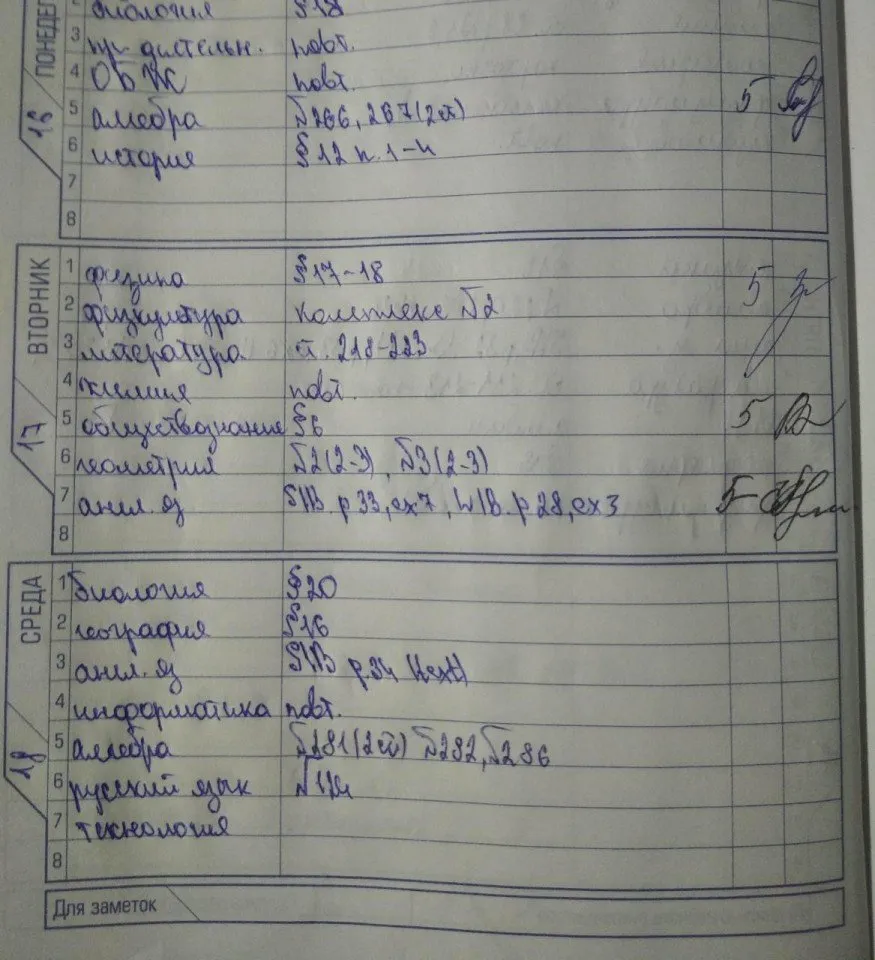 ПОНЕДЕЛ
16
2 биология §18
3 повт.
4 ОБЖ повт.
5 алгебра №266, 267(2ст) 5
6 история §12 п. 1-4
7
8
ВТОРНИК
17
1 физика §17-18 5
2 физкультура Комплекс №2
3 литература ст. 218-223
4 химия повт.
5 обществознание §6 5
6 геометрия №2(2-3), №3(2-3)
7 англ. яз S\B p 33, ex 7, W\B. p 28, ex 3 5-
8
СРЕДА
18
1 биология §20
2 география §16
3 англ. яз S\B p.34 (text)
4 информатика повт.
5 алгебра №281(2ст) №282, №286
6 русский язык
7 технология
8
Для заметок